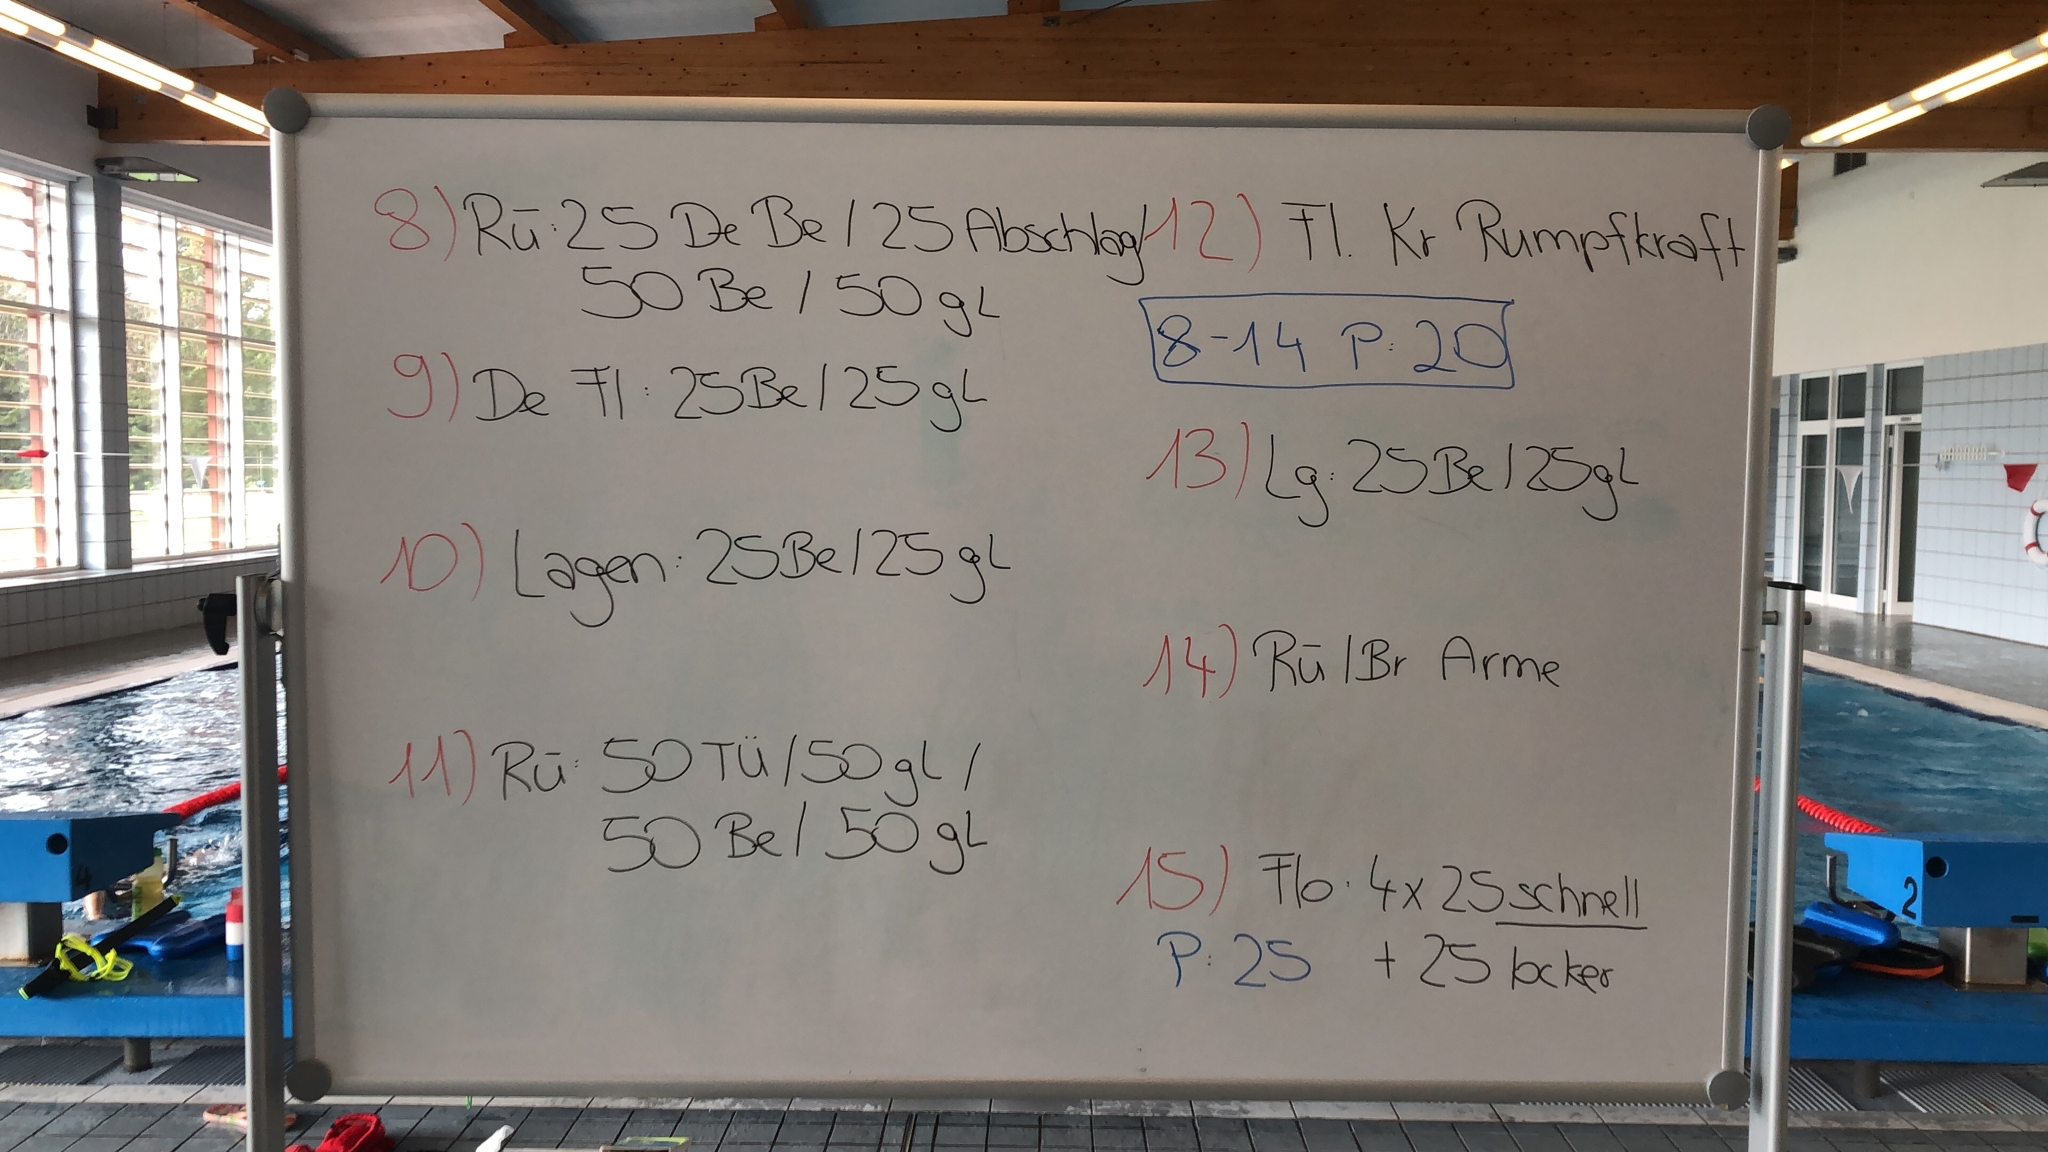 8) Rü: 25 De Be / 25 Abschlag/
50 Be / 50 gL
9) De Fl: 25 Be / 25 gL
10) Lagen: 25 Be / 25 gL
11) Rü: 50 TÜ / 50 gL /
50 Be / 50 gL
12) Fl. Kr Rumpfkraft
8-14 P: 20
13) Lg: 25 Be / 25 gL
14) Rü / Br Arme
15) Flo: 4x 25 schnell
P: 25 + 25 locker
4
2